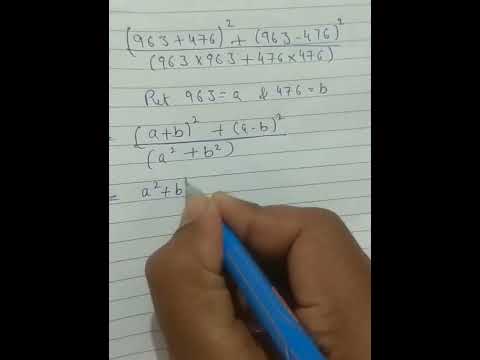 (963+476)² + (963-476)²
(963×963+476×476)
Put 963=a & 476=b
= (a+b)² + (a-b)²
(a² + b²)
= a²+b